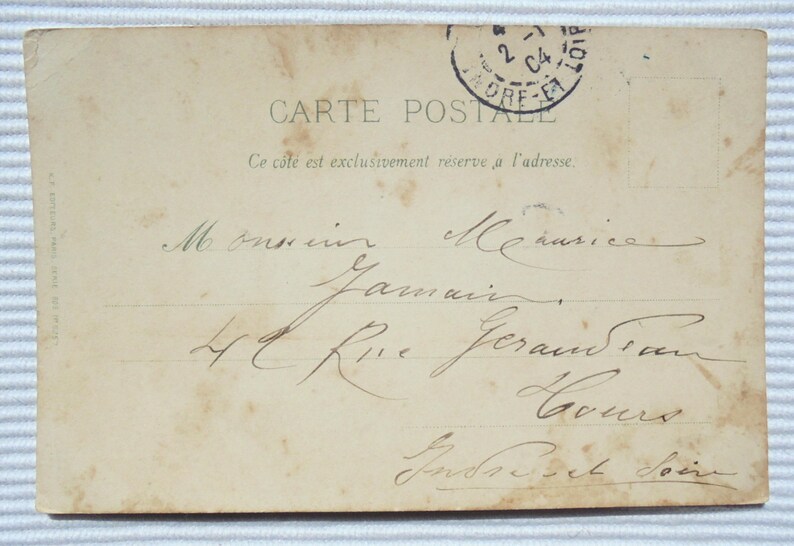 2 - 1
04
INDRE-ET-LOIRE
CARTE POSTALE
Ce côté est exclusivement réservé à l'adresse.
Monsieur Maurice
Jamain
42 Rue Géraudeau
Tours
Indre et Loire